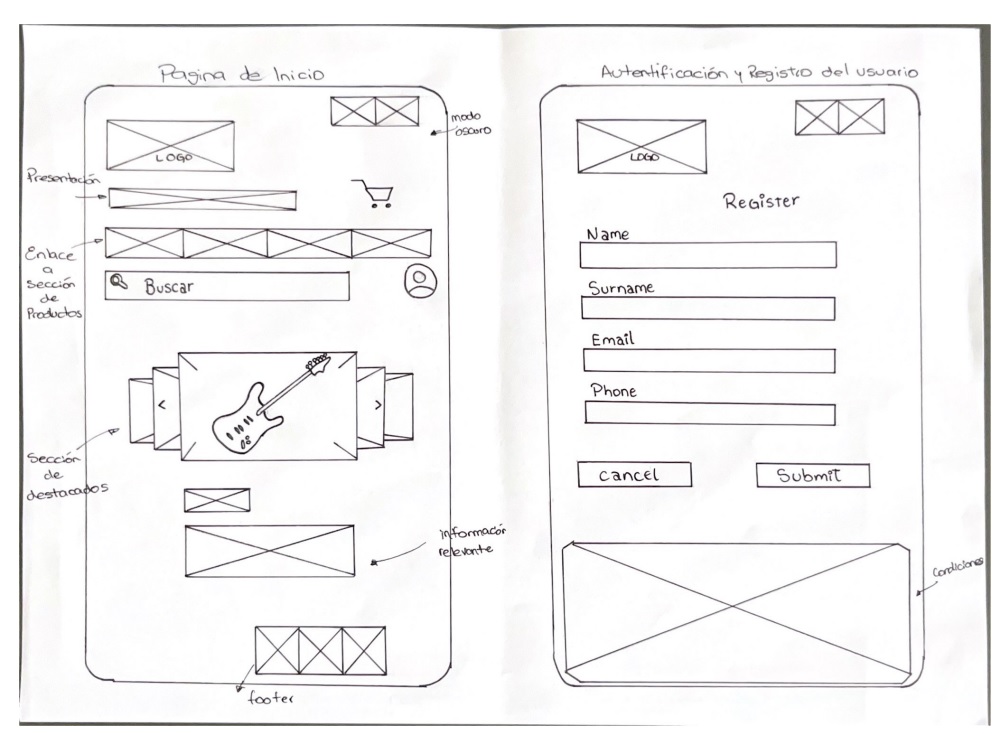 Pagina de Inicio
modo
oscuro
LOGO
Presentación
Enlace
a
Sección
de
Productos
Buscar
<
>
Sección
de
destacados
información
relevante
footer
Autentificación y Registro del usuario
LOGO
Register
Name
Surname
Email
Phone
cancel
Submit
Condiciones